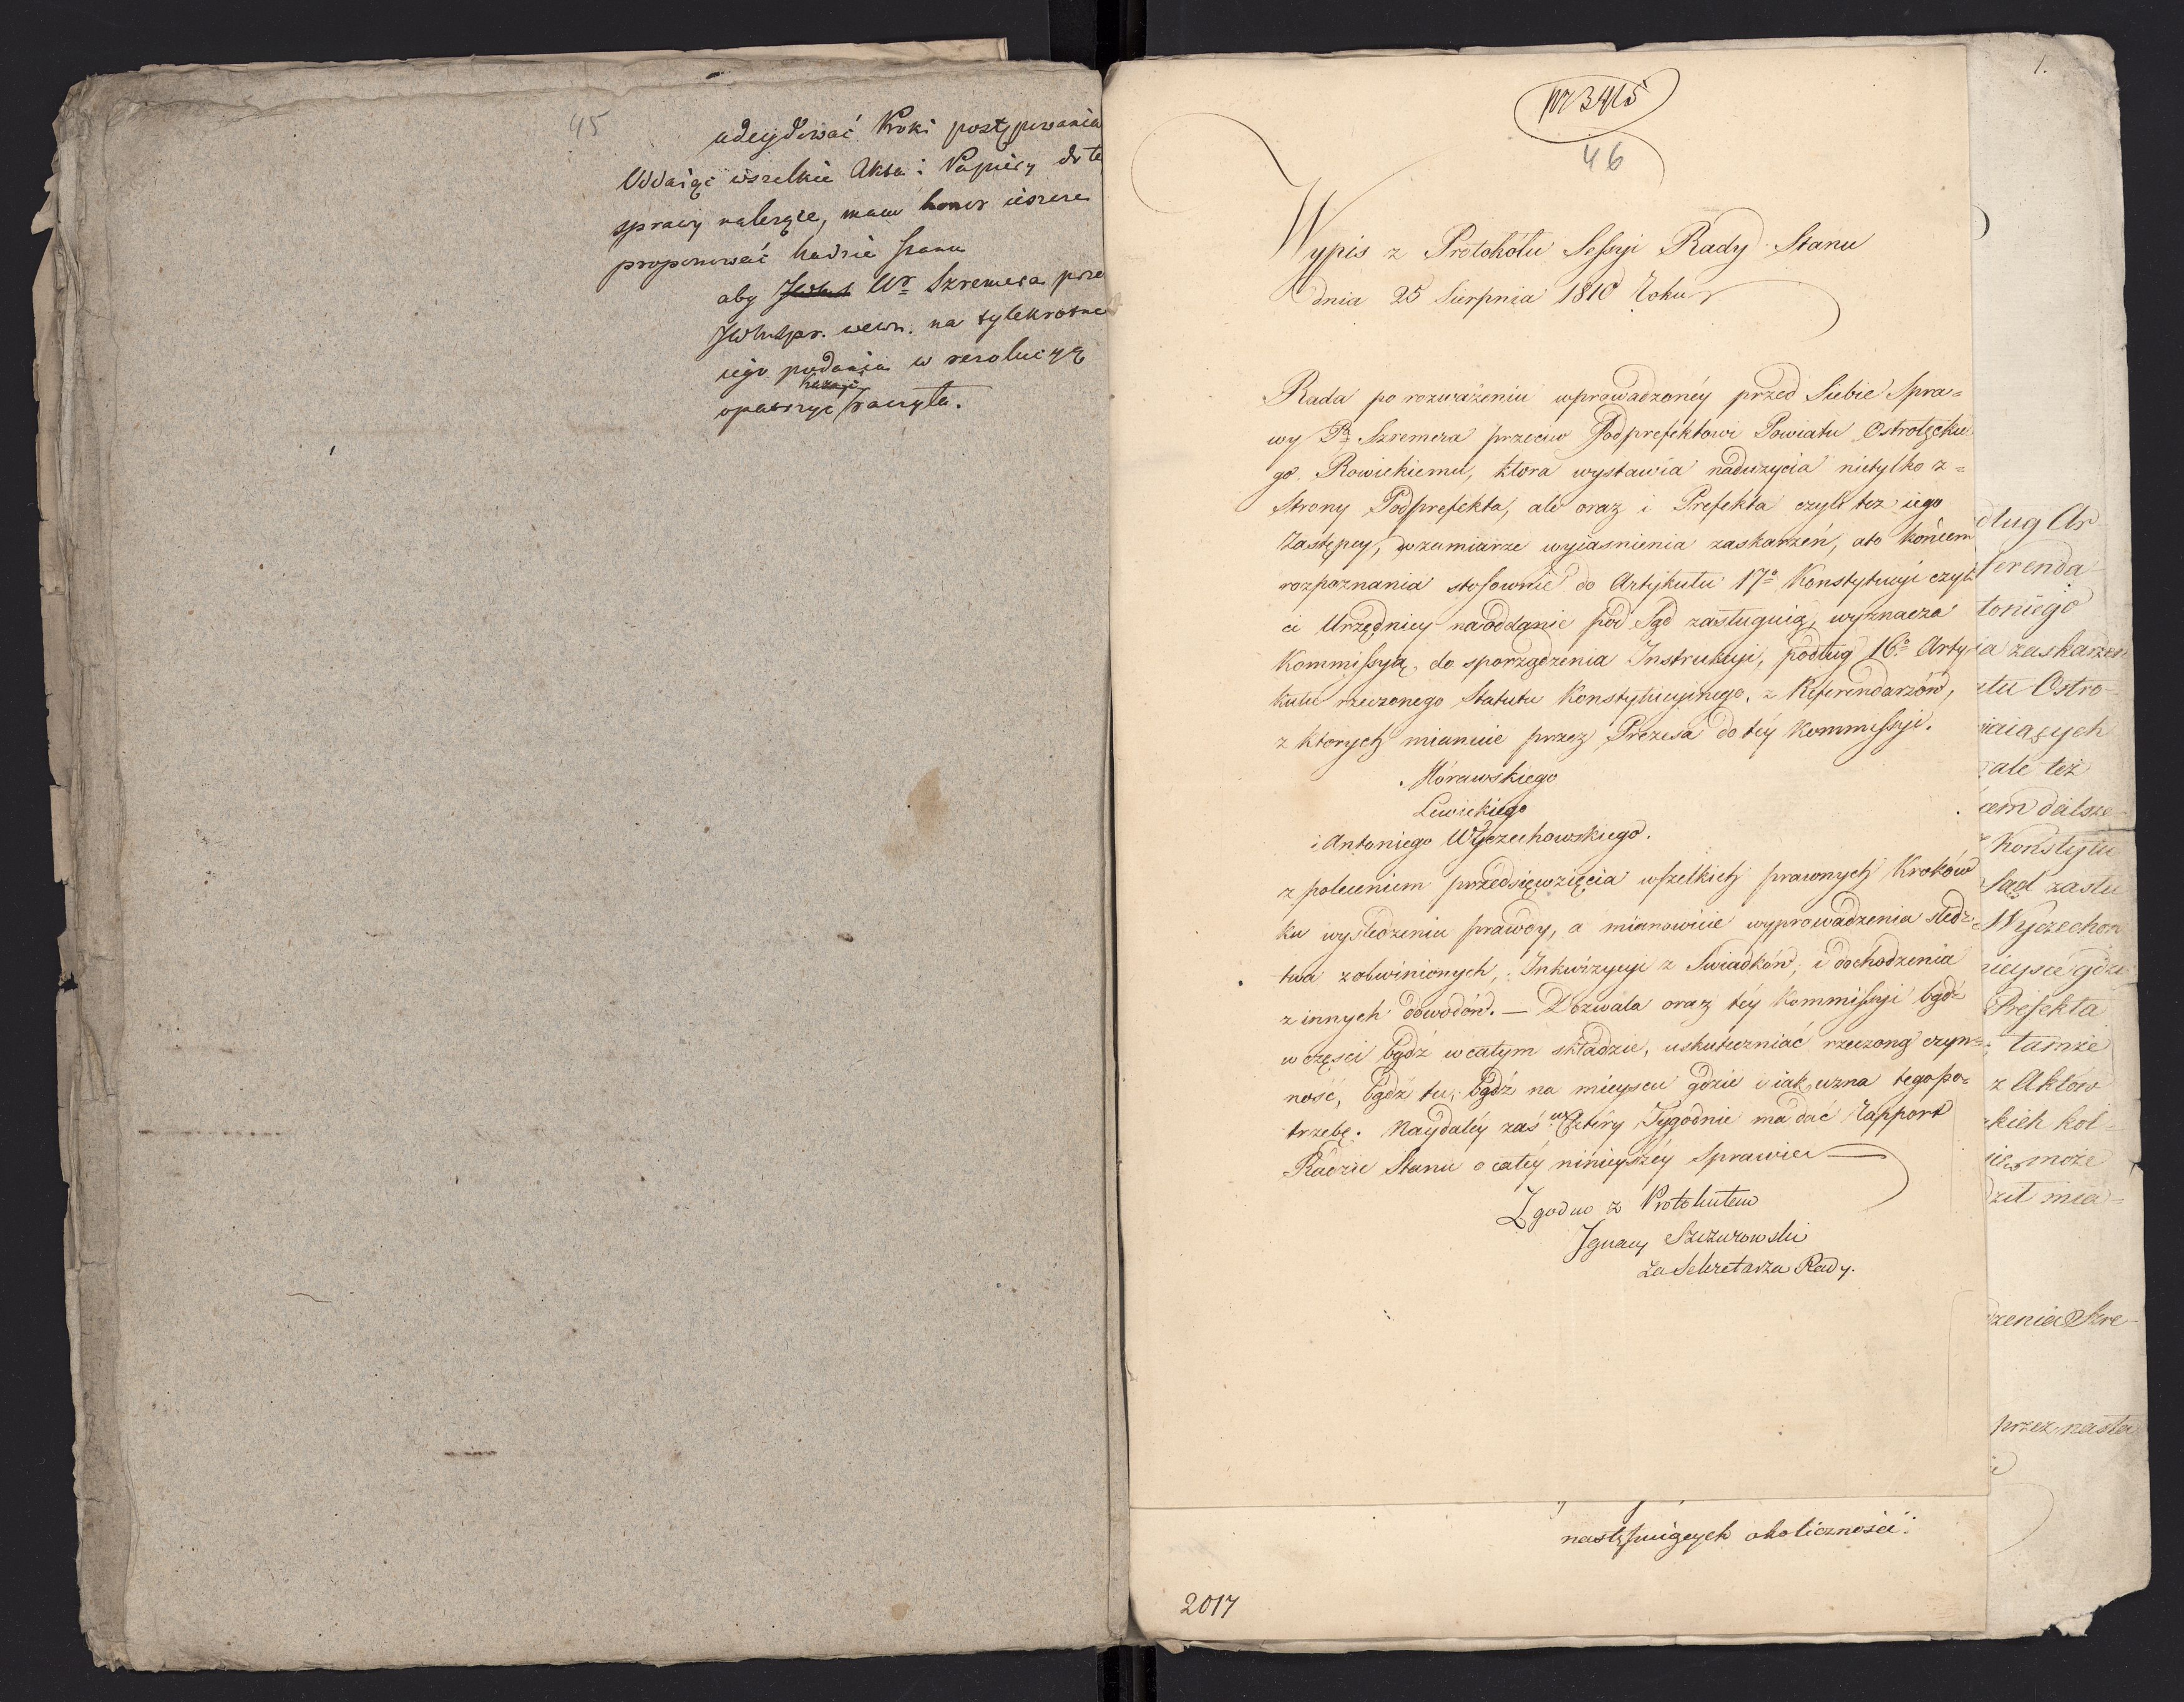 45
udecydować Kroki postępowania
Oddaiąc wszelkie Akta i Papiery do te
sprawy należące, mam honor ieszcze
proponować Radzie Stanu
aby Wº Szremera prze
JWMSpr. wewn. na tylekrotne
iego podania w rezolucyą
opatrzyć kazać raczyła.
Nr 3415
46
Wypis z Protokółu Sessyi Rady Stanu
dnia 25 Sierpnia 1810 Roku
Rada po rozważeniu wprowadzonéy przed Siebie Spra=
wy Pa Szremera przeciw Podprefektowi Powiatu Ostrołęckie
go Rowickiemu, ktora wystawia nadużycia nietylko z=
Strony Podprefekta, ale oraz i Prefekta czyli też iego
Zastępcy, w zamiarze wyiasnienia zaskarżeń, ato końcem
rozpoznania stosownie do Artykułu 17º Konstytucyi czyli
ci Urzędnicy na oddanie pod Sąd zasługuią, wyznacza
Kommissyą, do sporządzenia Instrukcyi, podług 16º Arty
kułu rzeczonego Statutu Konstytucyinego, z Referendarzów,
z ktorych mianuie przez Prezesa do téy Kommissyi.
Morawskiego
Lewickiego
i Antoniego Wyczechowskiego.
z poleceniem przedsięwzięcia wszelkich prawnych Kroków
ku wysledzeniu prawdy, a mianowicie wyprowadzenia sledz=
twa z obwinionych, Inkwizycyi z Swiadków, i dochodzenia
z innych dowodów. — Dozwala oraz téy Kommissyi bądź
w części bądź w całym składzie, uskuteczniać rzeczoną czyn=
ność, bądź tu, bądź na mieyscu gdzie i iak uzna tego po=
trzebę. Naydaléy zaś w Cztéry Tygodnie ma dać Rapport
Radzie Stanu o całéy ninieyszéy Sprawie
Zgodno z Protokułem
Ignacy Szczurowski
za Sekretarza Rady.
następuiących okoliczności:
2017
1.
dług Ar
ferenda
toniego
ia zaskarżen
atu Ostro=
iaiących
ale też
cem dalsze
Konstytu
Sąd zasłu
Wyczechow
mieysce gdzie
Prefekta
tamże
z Aktow
zkich kol=
może
zenia Szre=
przez nastę